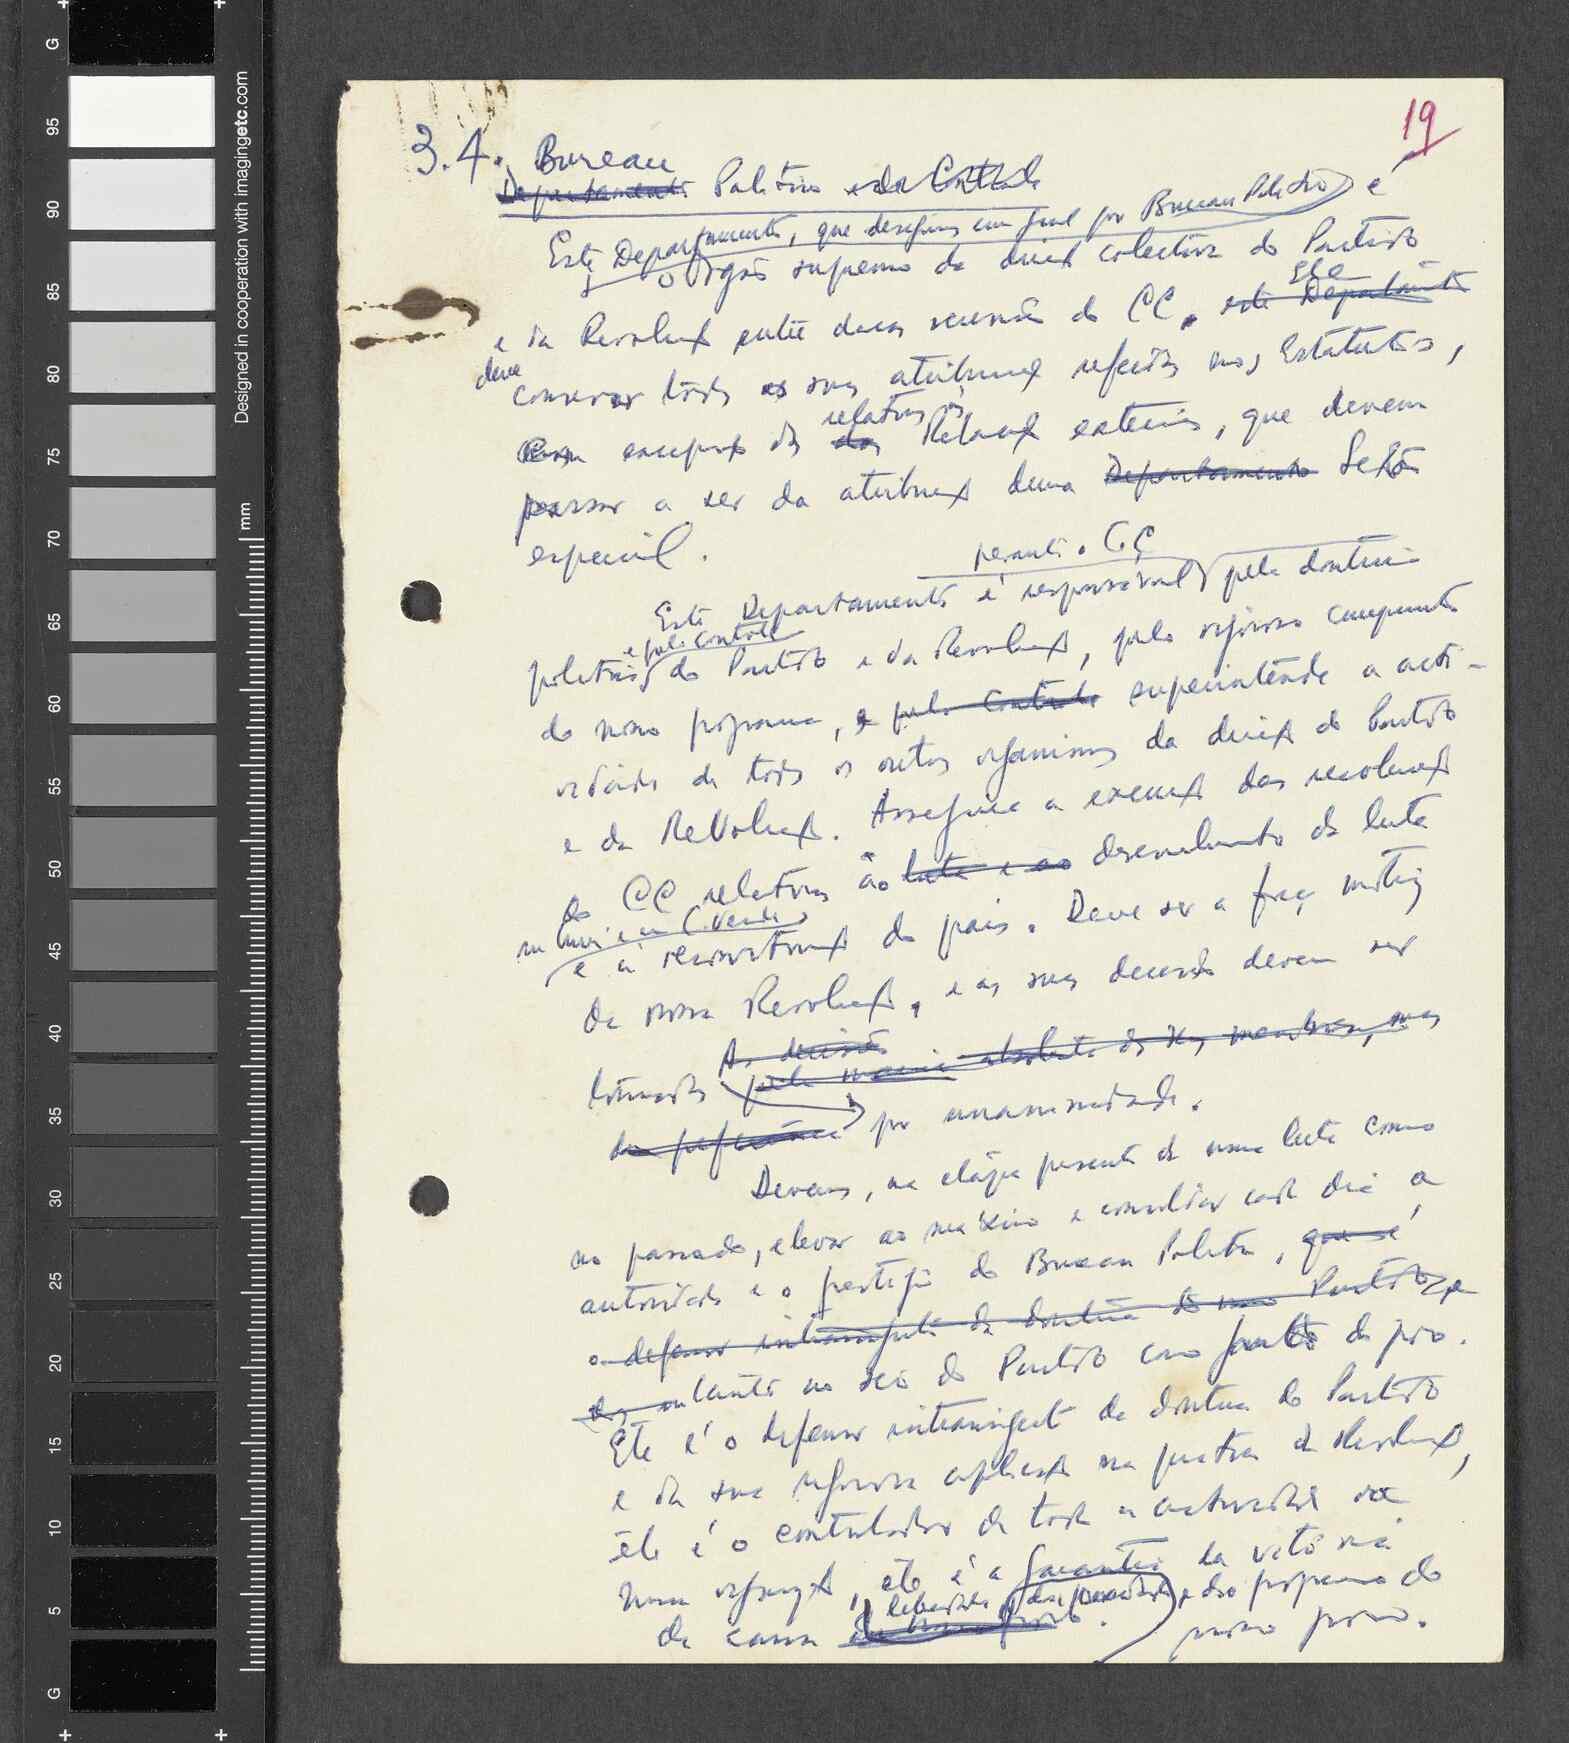 19
3.4. Bureau
Departamento Político e de Controle
Este Departamento, que designamos em geral por Bureau Político é
o orgão supremo da direcção colectiva do Partido
e da Revolução entre duas reuniões do CC. este Departamento Ele
deve
conservar todas as suas atribuições referidas nos Estatutos,
com excepção das relativas às das Relações exteriores, que devem
passar a ser da atribuição duma Departamento Secção
especial.
perante o CC
Este Departamento é responsável pela doutrina
e pelo controle
política do Partido e da Revolução, pelo rigoroso cumprimento
do nosso programa, e pelo Controle superintende a acti-
vidade de todos os outros organismos da direcção do Partido
e da Revolução. Assegura a execução das resoluções
do CC relativas ao luta e ao desenvolvimento da luta
na Guiné e em C. Verde
e à reconstrução do país. Deve ser a força motriz
da nossa Revolução, e as suas decisões devem ser
As decisões
tomadas pela maioria absoluta dos seus membros, mas
de preferência por unanimidade.
Devemos, na etapa presente da nossa luta como
no passado, elevar ao máximo e consolidar cada dia a
autoridade e o prestígio do Bureau Político, que é
o defensor intransigente da doutrina do nosso Partido e
militante no seio do Partido como junto do povo.
Ele é o defensor intransigente da doutrina do Partido
e da sua rigorosa aplicação na prática da Revolução,
ele é o controlador de toda a actividade da
nossa organização, ele é a garantia da vitória
da causa da liberdade, da e do progresso do
nosso povo.
Designed in cooperation with imagingetc.com
mm
G
95
90
85
80
75
70
65
60
55
50
45
40
35
30
25
20
15
10
5
G